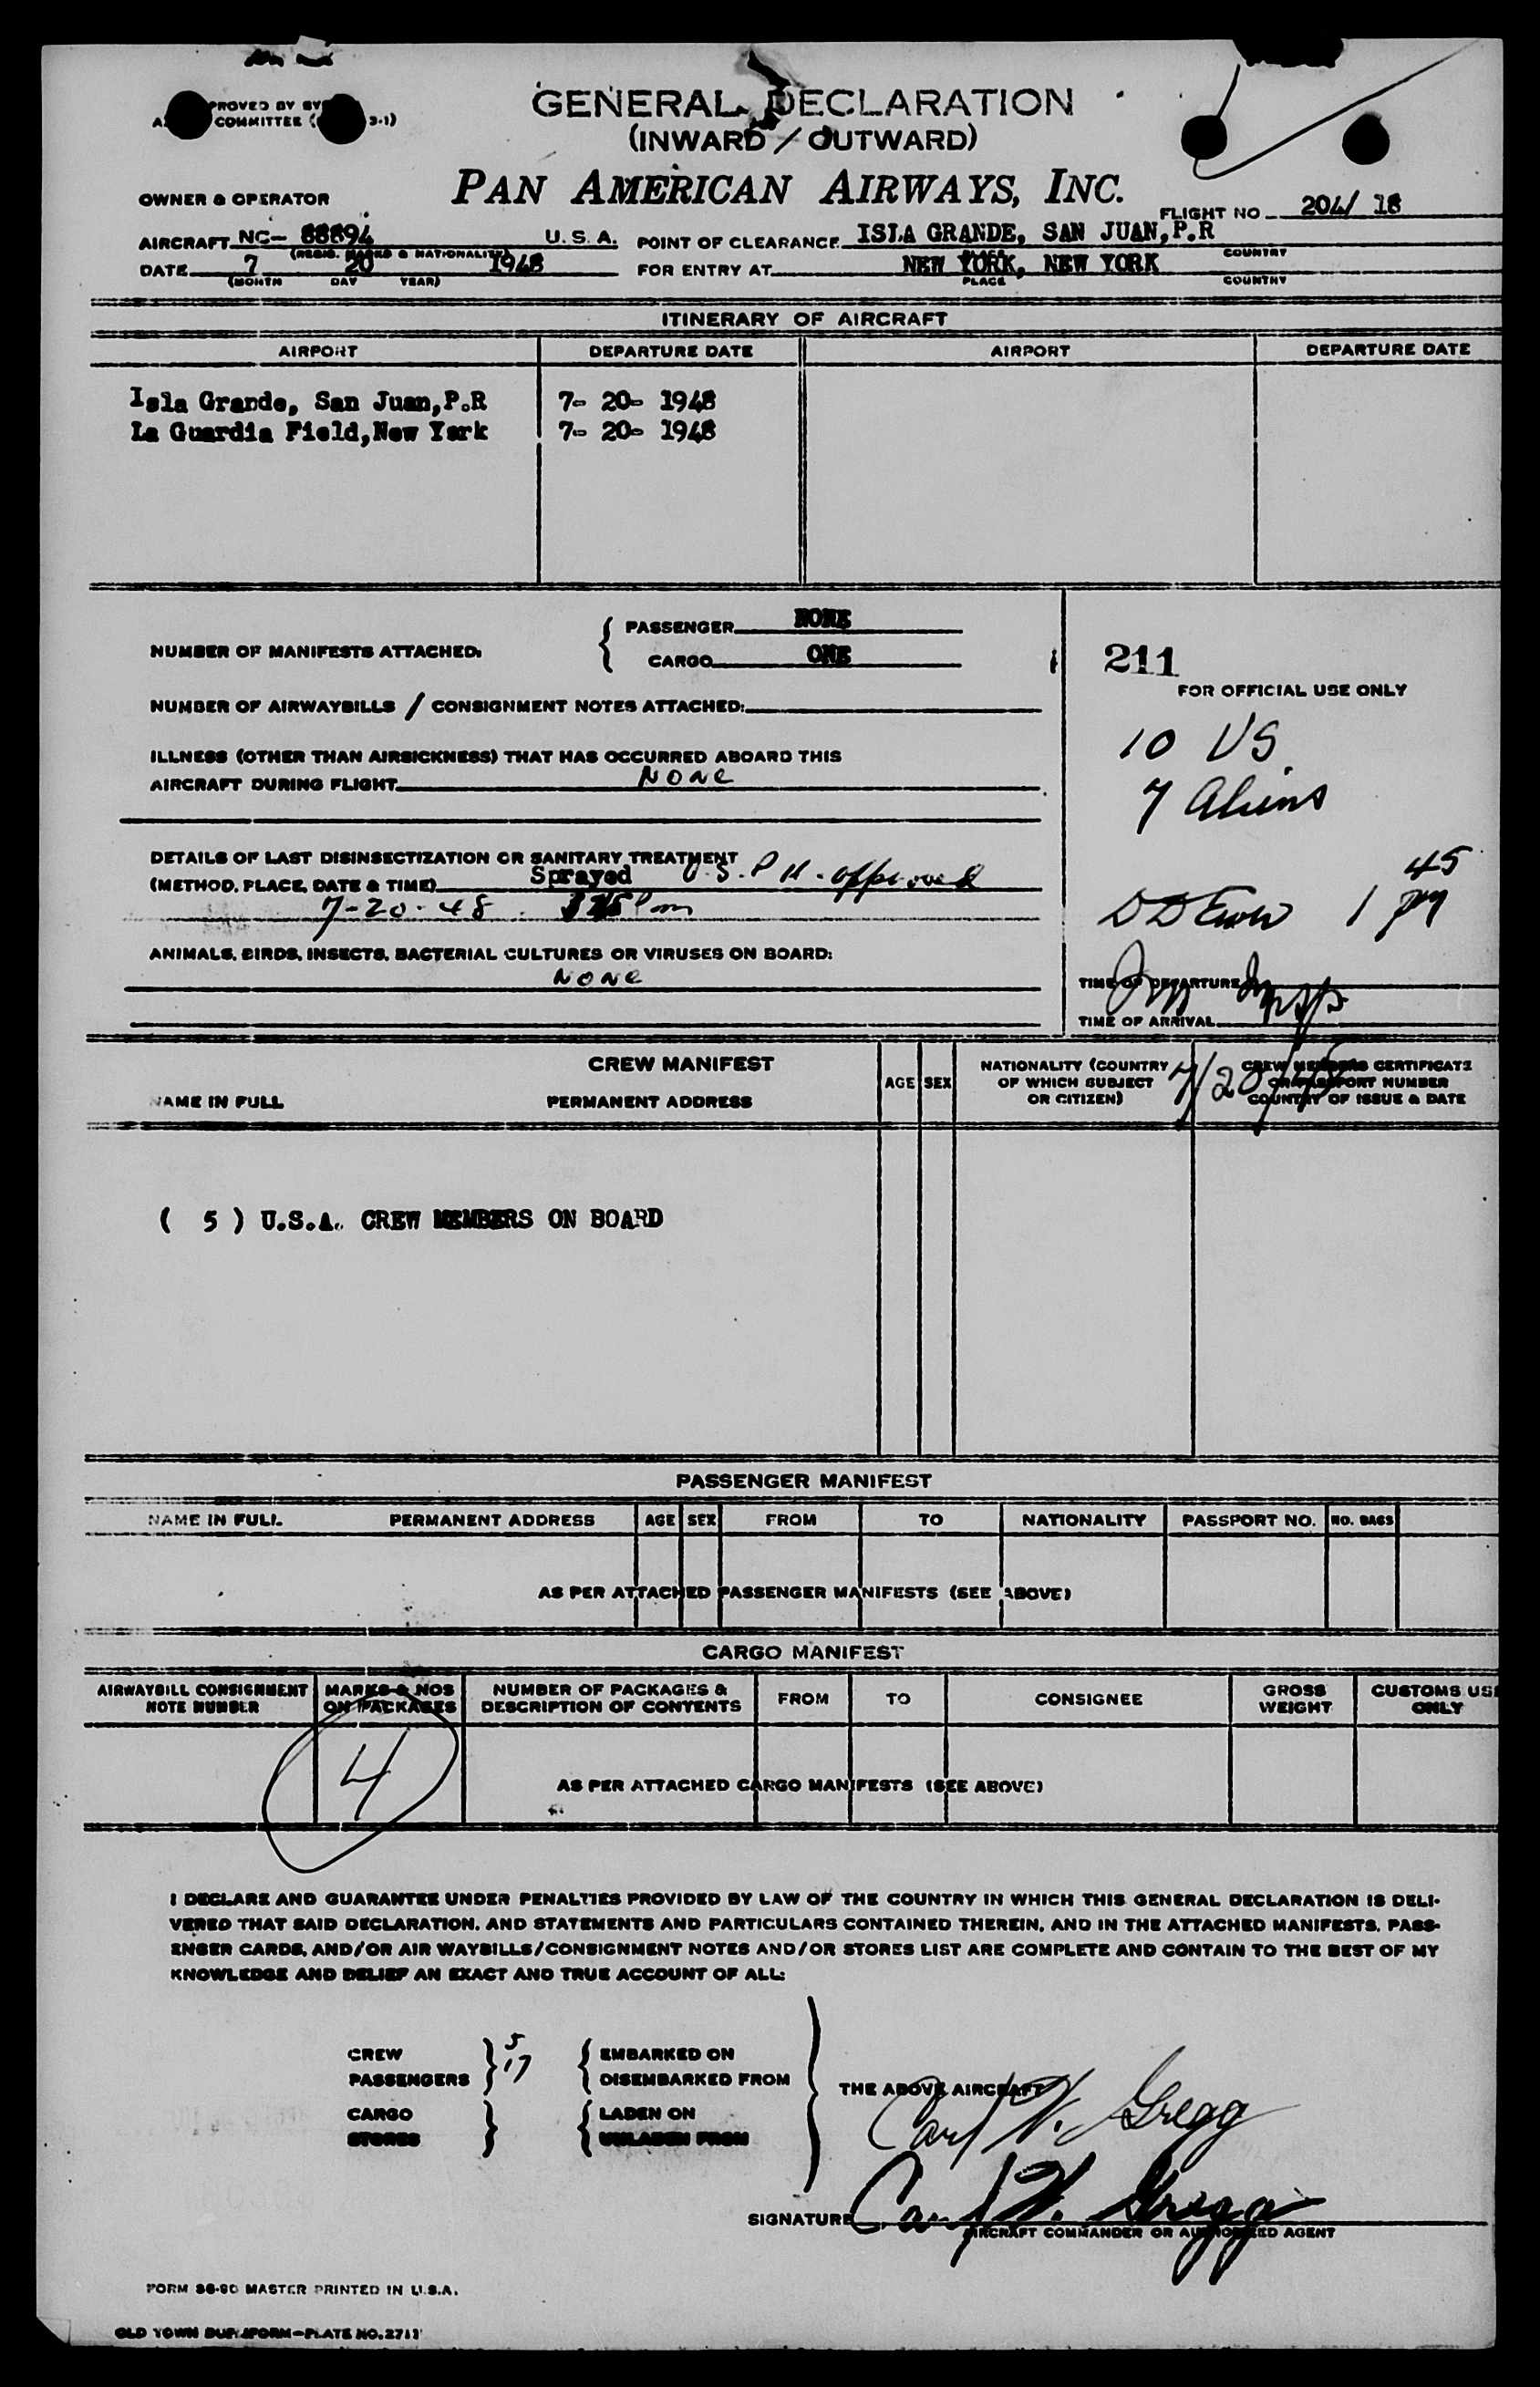 GENERAL DECLARATION
(INWARD / OUTWARD)
COMMITTEE ( 3-1)
PAN AMERICAN AIRWAYS, INC.
OWNER & OPERATOR
FLIGHT NO 204/ 18
AIRCRAFT NC- 88894 U.S.A. POINT OF CLEARANCE ISLA GRANDE, SAN JUAN, P.R
(REGIS. MARKS & NATIONALITY) COUNTRY
DATE 7 20 1948 FOR ENTRY AT NEW YORK, NEW YORK
(MONTH DAY YEAR) PLACE COUNTRY
ITINERARY OF AIRCRAFT
AIRPORT DEPARTURE DATE AIRPORT DEPARTURE DATE
Isla Grande, San Juan,P.R 7- 20- 1948
La Guardia Field,New York 7- 20- 1948
NUMBER OF MANIFESTS ATTACHED: PASSENGER NONE
CARGO ONE
211
FOR OFFICIAL USE ONLY
NUMBER OF AIRWAYBILLS / CONSIGNMENT NOTES ATTACHED:
10 US
7 Aliens
ILLNESS (OTHER THAN AIRSICKNESS) THAT HAS OCCURRED ABOARD THIS
AIRCRAFT DURING FLIGHT None
DETAILS OF LAST DISINSECTIZATION OR SANITARY TREATMENT
(METHOD, PLACE, DATE & TIME) Sprayed U.S. P H. approved
7-20-48
45
1
ANIMALS, BIRDS, INSECTS, BACTERIAL CULTURES OR VIRUSES ON BOARD:
None
TIME OF DEPARTURE
TIME OF ARRIVAL
7/20/48
CREW MANIFEST
NAME IN FULL PERMANENT ADDRESS AGE SEX NATIONALITY (COUNTRY OF WHICH SUBJECT OR CITIZEN) CREW MEMBERS CERTIFICATE OR PASSPORT NUMBER COUNTRY OF ISSUE & DATE
( 5 ) U.S.A. CREW MEMBERS ON BOARD
PASSENGER MANIFEST
NAME IN FULL PERMANENT ADDRESS AGE SEX FROM TO NATIONALITY PASSPORT NO. NO. BAGS
AS PER ATTACHED PASSENGER MANIFESTS (SEE ABOVE)
CARGO MANIFEST
AIRWAYBILL CONSIGNMENT NOTE NUMBER MARKS & NOS ON PACKAGES NUMBER OF PACKAGES & DESCRIPTION OF CONTENTS FROM TO CONSIGNEE GROSS WEIGHT CUSTOMS USE ONLY
4
AS PER ATTACHED CARGO MANIFESTS (SEE ABOVE)
I DECLARE AND GUARANTEE UNDER PENALTIES PROVIDED BY LAW OF THE COUNTRY IN WHICH THIS GENERAL DECLARATION IS DELI-
VERED THAT SAID DECLARATION, AND STATEMENTS AND PARTICULARS CONTAINED THEREIN, AND IN THE ATTACHED MANIFESTS, PASS-
ENGER CARDS, AND/OR AIR WAYBILLS/CONSIGNMENT NOTES AND/OR STORES LIST ARE COMPLETE AND CONTAIN TO THE BEST OF MY
KNOWLEDGE AND BELIEF AN EXACT AND TRUE ACCOUNT OF ALL:
CREW 5 EMBARKED ON
PASSENGERS 17 DISEMBARKED FROM
THE ABOVE AIRCRAFT
CARGO LADEN ON
STORES UNLADEN FROM
Carl W. Gregg
SIGNATURE Carl W. Gregg
AIRCRAFT COMMANDER OR AUTHORIZED AGENT
FORM 86-9D MASTER PRINTED IN U.S.A.
OLD TOWN DUPLIFORM—PLATE NO. 2711